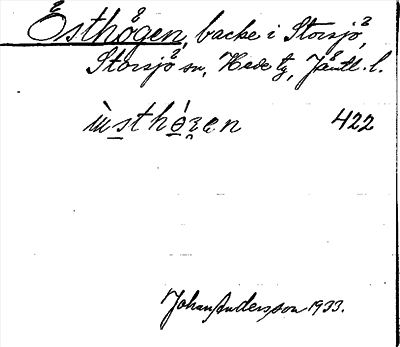 Östhögen, backe i Storsjö,
Storsjö sn, Hede tg, Jämtl. l.
422
Johan Andersson 1933.